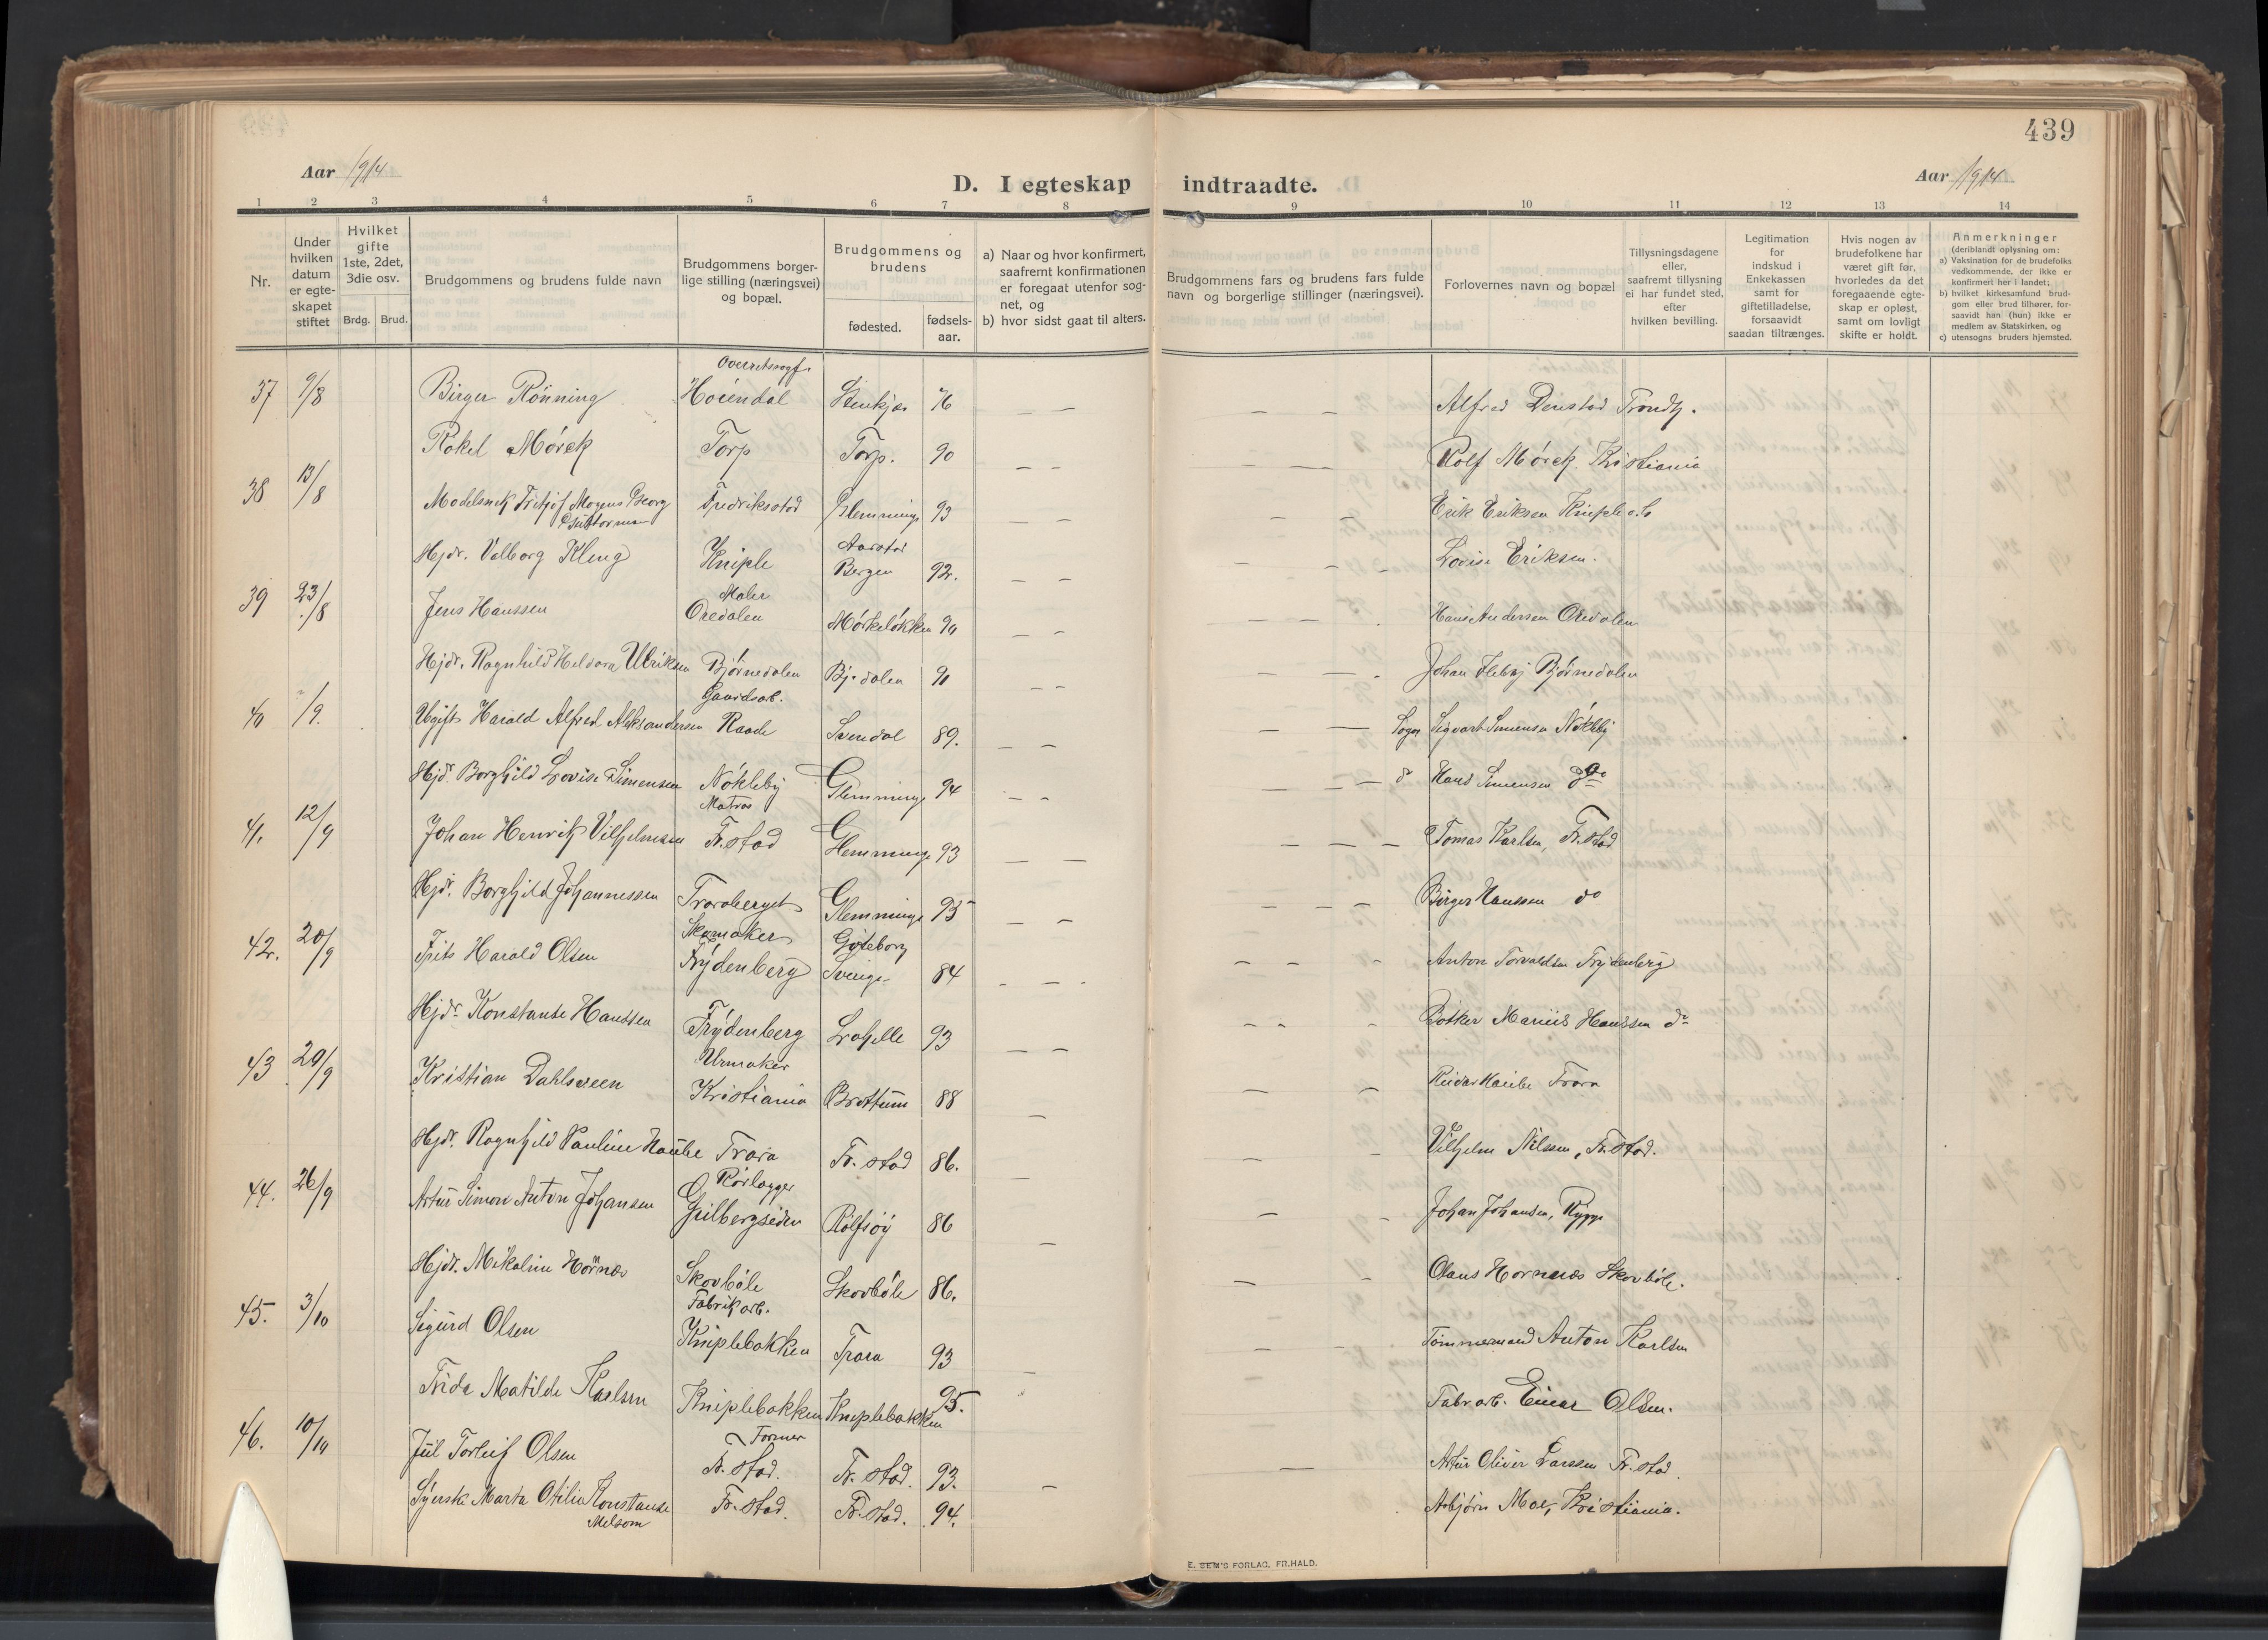 439
Aar 1914
D. I egteskap indtraadte.
Aar 1914
1 2 3 4 5 6 7 8 9 10 11 12 13 14
Nr.
Under hvilken datum er egte- skapet stiftet
Hvilket gifte 1ste, 2det, 3die osv.
Brdg. Brud.
Brudgommens og brudens fulde navn
Brudgommens borger- lige stilling (næringsvei) og bopæl.
Brudgommens og brudens
fødested.
fødsels- aar.
a) Naar og hvor konfirmert, saafremt konfirmationen er foregaat utenfor sog- net, og
b) hvor sidst gaat til alters.
Brudgommens fars og brudens fars fulde navn og borgerlige stillinger (næringsvei).
Forlovernes navn og bopæl
Tillysningsdagene eller, saafremt tillysning ei har fundet sted, efter hvilken bevilling.
Legitimation for indskud i Enkekassen samt for giftetilladelse, forsaavidt saadan tiltrænges.
Hvis nogen av brudefolkene har været gift før, hvorledes da det foregaaende egte- skap er opløst, samt om lovligt skifte er holdt.
Anmerkninger
(deriblandt oplysning om:
a) Vaksination for de brudefolks vedkommende, der ikke er konfirmert her i landet;
b) hvilket kirkesamfund brud- gom eller brud tilhører, for- saavidt han (hun) ikke er medlem av Statskirken, og
c) utensogns bruders hjemsted.
Overretssagf.
37 9/8 Birger Rönning Höiendal Stenkjær 76 Alfred Denstad Trondhj.
Rakel Mörck Torp Torp. 90 Rolf Mörck Kristiania
38 13/8 Modelsnek Fritjof Mogens Georg Fredriksstad Glemminge 93 Erik Eriksen Kniple
Hjdr. Valborg Kleng Kniple Aarstad Bergen 92. Lovise Eriksen.
Maler
39 23/8 Jens Hanssen Oredalen Mörkelökken 90 Hans Andersen Oredalen
Hjdr. Ragnhild Heldora Ulriksen Björnedalen Bj.dalen 91 Johan Bjørnedalen
Gaardsarb.
40 /9. Ugift Harald Alfred Aleksandersen Raade Svendal 89. Sigvart Simensen Nökleby
Hjdr. Borghild Lovise Simensen Nökleby Glemminge 94 Hans Simensen do
Matros
41. 12/9 Johan Henrik Vilhjelmsen Fr.stad Glemminge 93 Tomas Karlsen, Fr.stad
Hjdr. Borghild Johannessen Traraberget Glemminge 95 Birger Hanssen do
Skomaker Göteborg
42. 20/9 Frits Harald Olsen Frydenberg Sverige 84 Anton Torvaldsen Frydenberg
Hjdr. Konstanse Hanssen Frydenberg Drahelle 93 Marius Hanssen do
Urmaker
43 20/9 Kristian Dahlsveen Kristiania Brøttum 88 Reidar Haube Trara
Hjdr. Ragnhild Pauline Haube Trara Fr. stad 86. Vilhjelm Nilssen, Fr.stad.
Rörlægger
44. 26/9 Artur Simon Anton Johansen Gulbergsiden Rolfsöy 86 Johan Johansen, Rygge
Hjdr. Mikaline Hornæs Skovböle Skovböle 86. Olaus Hornæs Skovböle.
Fabrikarb.
45. 3/10 Sigurd Olsen Kniplebakken Trara 93 Tömmermand Anton Karlsen
Frida Matilde Karlsen Kniplebakken Kniplebakken 95. Fabrarb. Einar Olsen.
Former
46. 10/10 Jul Torleif Olsen Fr. stad. Fr. stad. 93. Artur Oliver Larssen Fr. stad
Syersk. Marta Otilie Konstanse Melsom Fr. stad. Fr. stad. 94. Asbjørn Moe, Kristiania.
E. SEM'S FORLAG, FR.HALD.